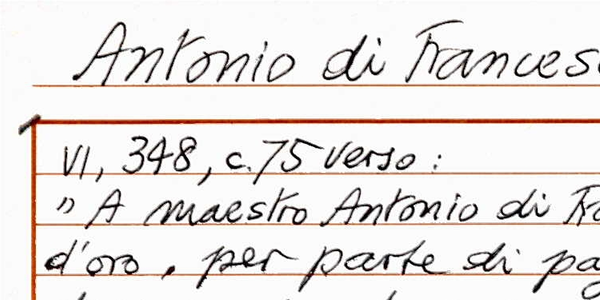 Antonio di Frances
VI, 348, c. 75 verso :
" A maestro Antonio di Fra
d'oro, per parte di pa